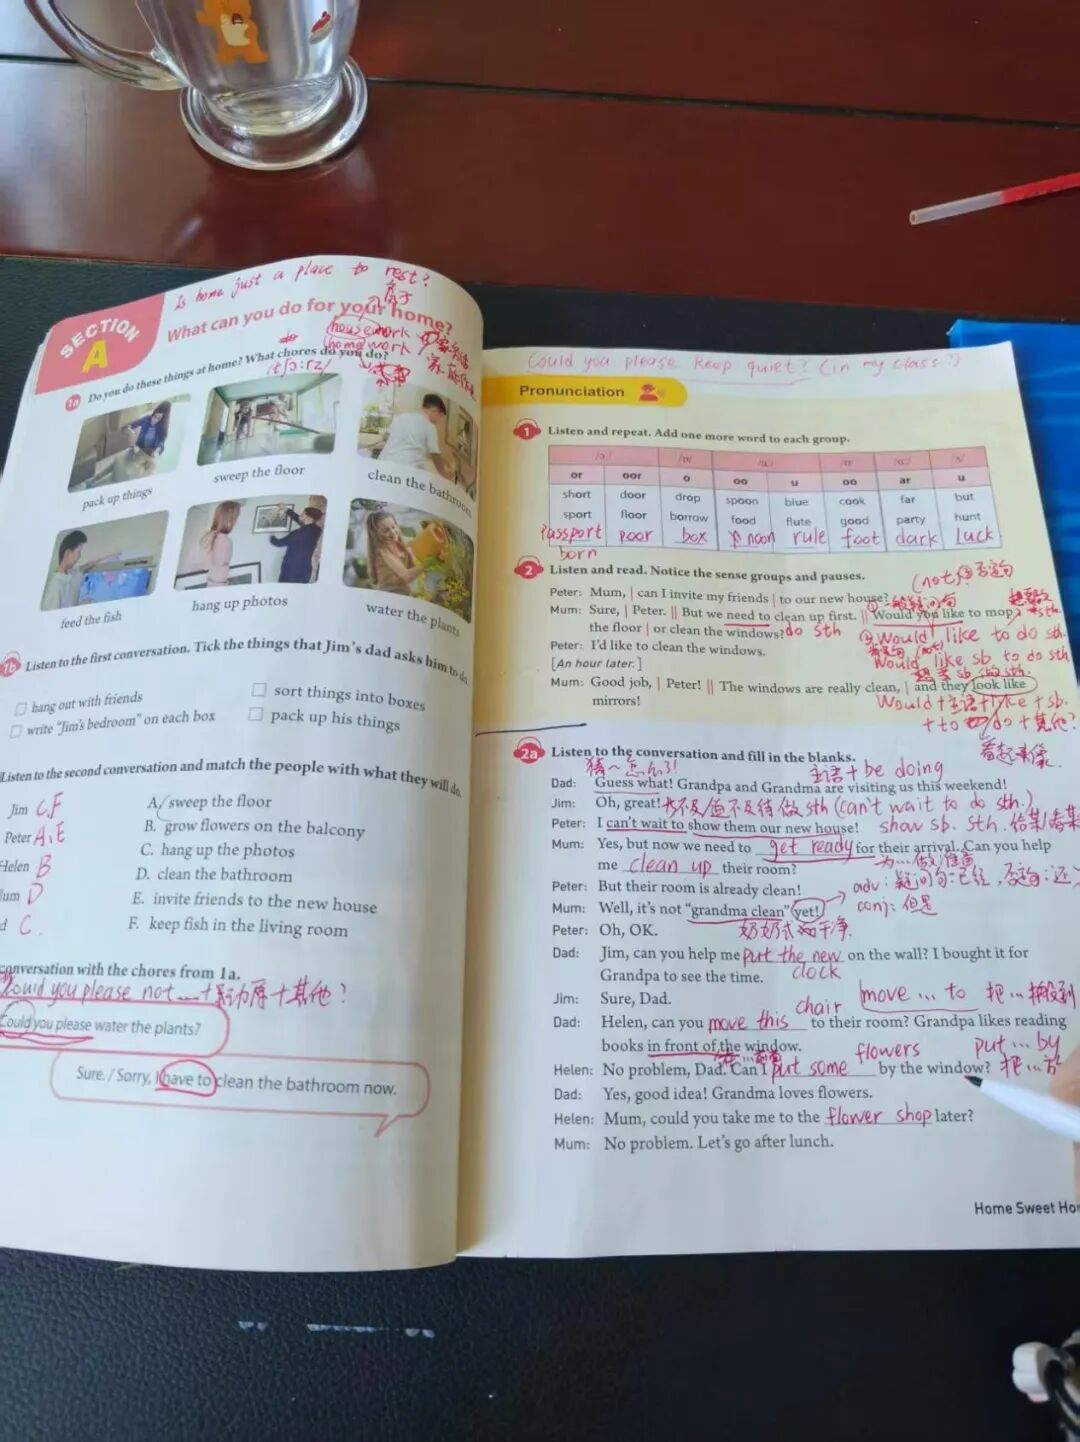 Is home just a place to rest?
SECTION
A
What can you do for your home?
housework
homework
1a Do you do these things at home? What chores do you do?
/tʃɔ:rz/
pack up things
sweep the floor
clean the bathroom
feed the fish
hang up photos
water the plants
1b Listen to the first conversation. Tick the things that Jim's dad asks him to do.
hang out with friends
sort things into boxes
write "Jim's bedroom" on each box
pack up his things
Listen to the second conversation and match the people with what they will do.
Jim C,F
Peter A、E
Helen B
um D
d C.
A. sweep the floor
B. grow flowers on the balcony
C. hang up the photos
D. clean the bathroom
E. invite friends to the new house
F. keep fish in the living room
conversation with the chores from 1a.
Could you please not ...+动原+其他?
Could you please water the plants?
Sure. / Sorry, I have to clean the bathroom now.
Could you please keep quiet? (in my class?)
Pronunciation
1 Listen and repeat. Add one more word to each group.
or oor o oo u oo ar u
short door drop spoon blue cook far but
sport floor borrow food flute good party hunt
passport poor box noon rule foot dark luck
born
2 Listen and read. Notice the sense groups and pauses.
(not) 否定句
Peter: Mum, | can I invite my friends | to our new house? ①一般疑问句
Mum: Sure, | Peter. || But we need to clean up first. || Would you like to mop
the floor | or clean the windows? do sth
sth.
② Would like to do sth.
Peter: I'd like to clean the windows.
Would like sb. to do sth
[An hour later.]
想要 sb. 做 sth.
Mum: Good job, | Peter! || The windows are really clean, | and they look like
mirrors!
Would+主语+like+sb.
+to do+其他?
看起来像
2a Listen to the conversation and fill in the blanks.
猜~怎么了!
主语+be doing
Dad: Guess what! Grandpa and Grandma are visiting us this weekend!
Jim: Oh, great! 迫不及待做 sth (can't wait to do sth.)
Peter: I can't wait to show them our new house! show sb. sth. 给某人看某
Mum: Yes, but now we need to get ready for their arrival. Can you help
为...做准备
me clean up their room?
Peter: But their room is already clean!
adv: 疑问句:已经,否定:还
Mum: Well, it's not "grandma clean" yet!
conj: 但是
Peter: Oh, OK. 奶奶式的干净.
Dad: Jim, can you help me put the new clock on the wall? I bought it for
Grandpa to see the time.
Jim: Sure, Dad.
move ... to 把...搬到
Dad: Helen, can you move this chair to their room? Grandpa likes reading
books in front of the window.
put ... by
Helen: No problem, Dad. Can I put some flowers by the window? 把...放
Dad: Yes, good idea! Grandma loves flowers.
Helen: Mum, could you take me to the flower shop later?
Mum: No problem. Let's go after lunch.
Home Sweet Ho